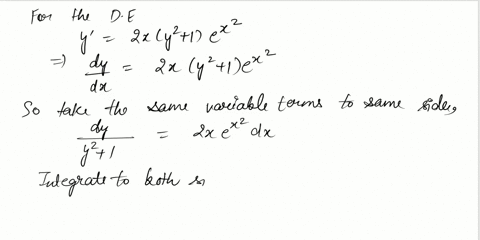 For the D.E
y' = 2x (y²+1) e^{x²}
=) dy/dx = 2x (y²+1) e^{x²}
So take the same variable terms to same sides,
dy/(y²+1) = 2x e^{x²} dx
Integrate to both s